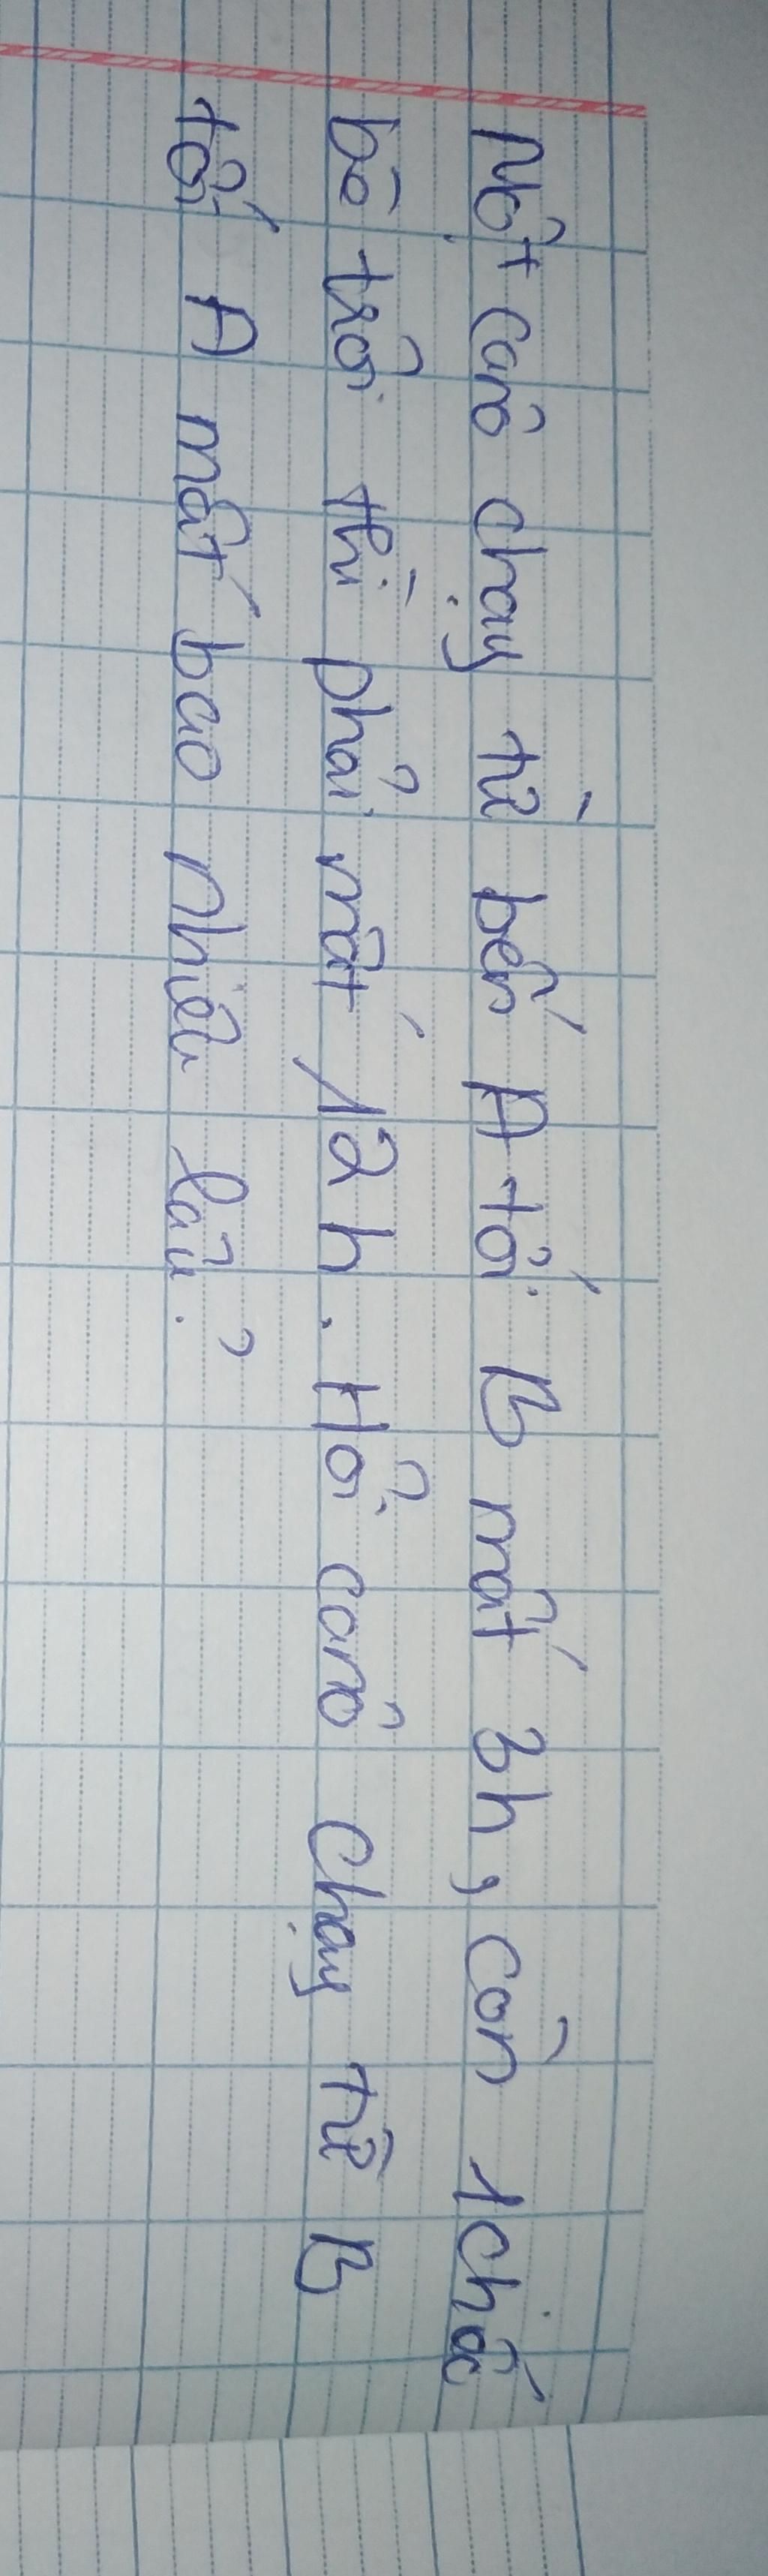 Một canô chạy từ bến A tới B mất 3h, còn 1 chiếc
bè trôi thì phải mất 12h. Hỏi canô chạy từ B
tới A mất bao nhiêu lâu?